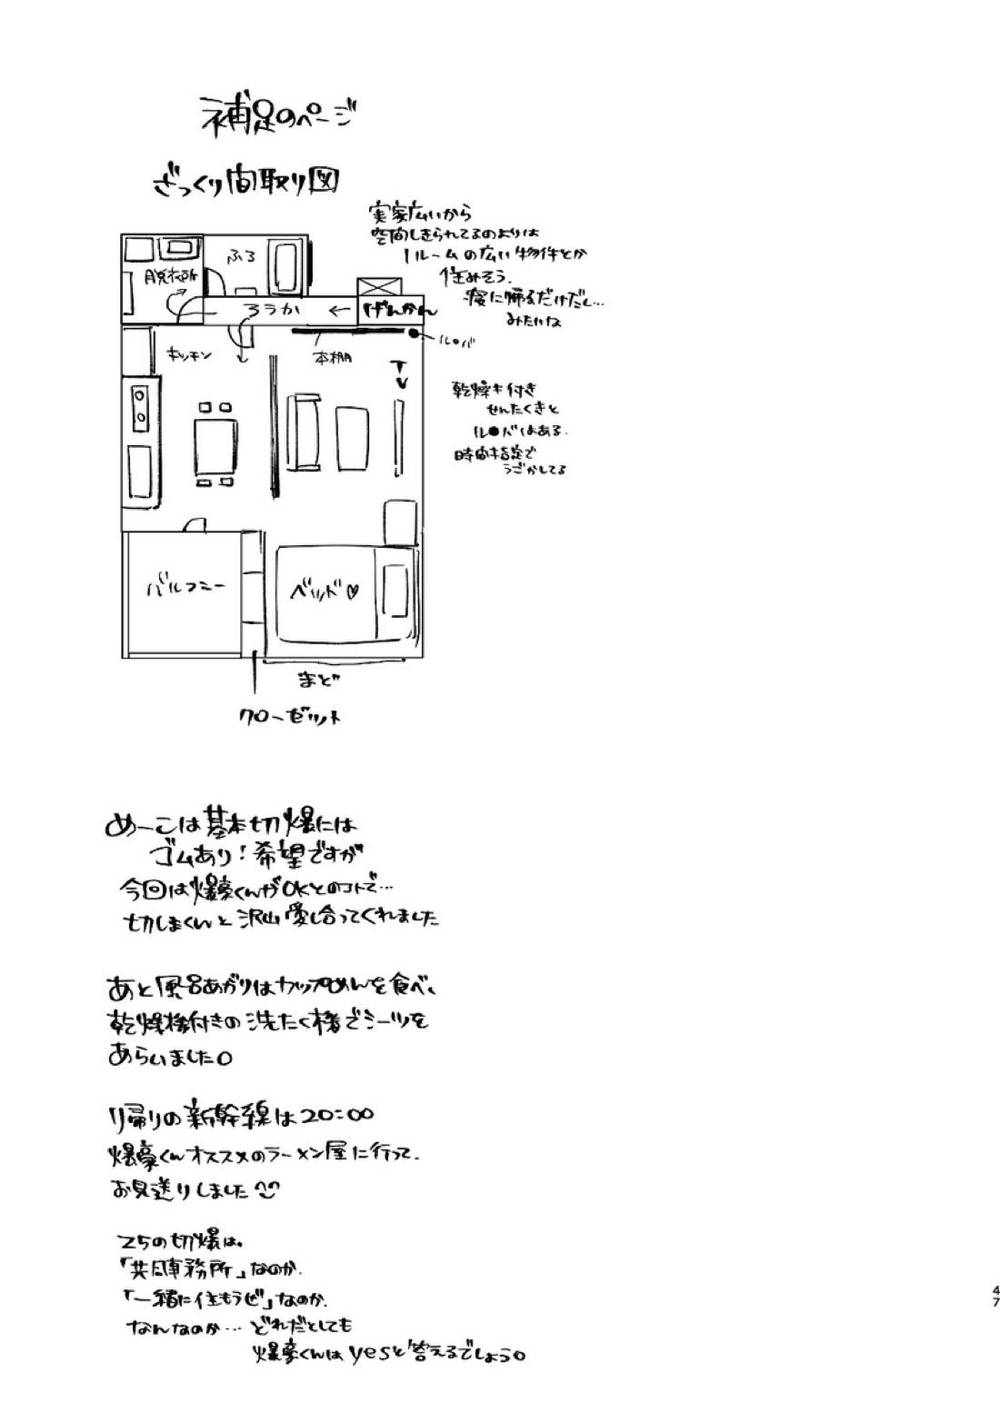 補足のページ
ざっくり間取り図
実家広いから
空間しきられてるのよりは
1ルームの広い物件とか
住みそう.
寝に帰るだけだし…
みたいな
ふろ
脱衣所
ろうか
←
げんかん
ル●バ
キッチン
本棚
TV
乾燥キ付き
せんたくきと
ル●バはある.
時間指定で
うごかしてる
バルコニー
ベッド♡
まど
クローゼット
めーこは基本切爆には
ゴムあり!希望ですが
今回は爆豪くんがOKとのコトで…
切しまくんと沢山愛し合ってくれました
あと風呂あがりはカップめんを食べ、
乾燥機付きの洗たく機でシーツを
あらいました。
帰りの新幹線は20:00
爆豪くんオススメのラーメン屋に行って.
お見送りしました^^
25の切爆は。
「共同事務所」なのか.
「一緒に住もうぜ」なのか.
なんなのか… どれだとしても
爆豪くんはyesと答えるでしょう。
47